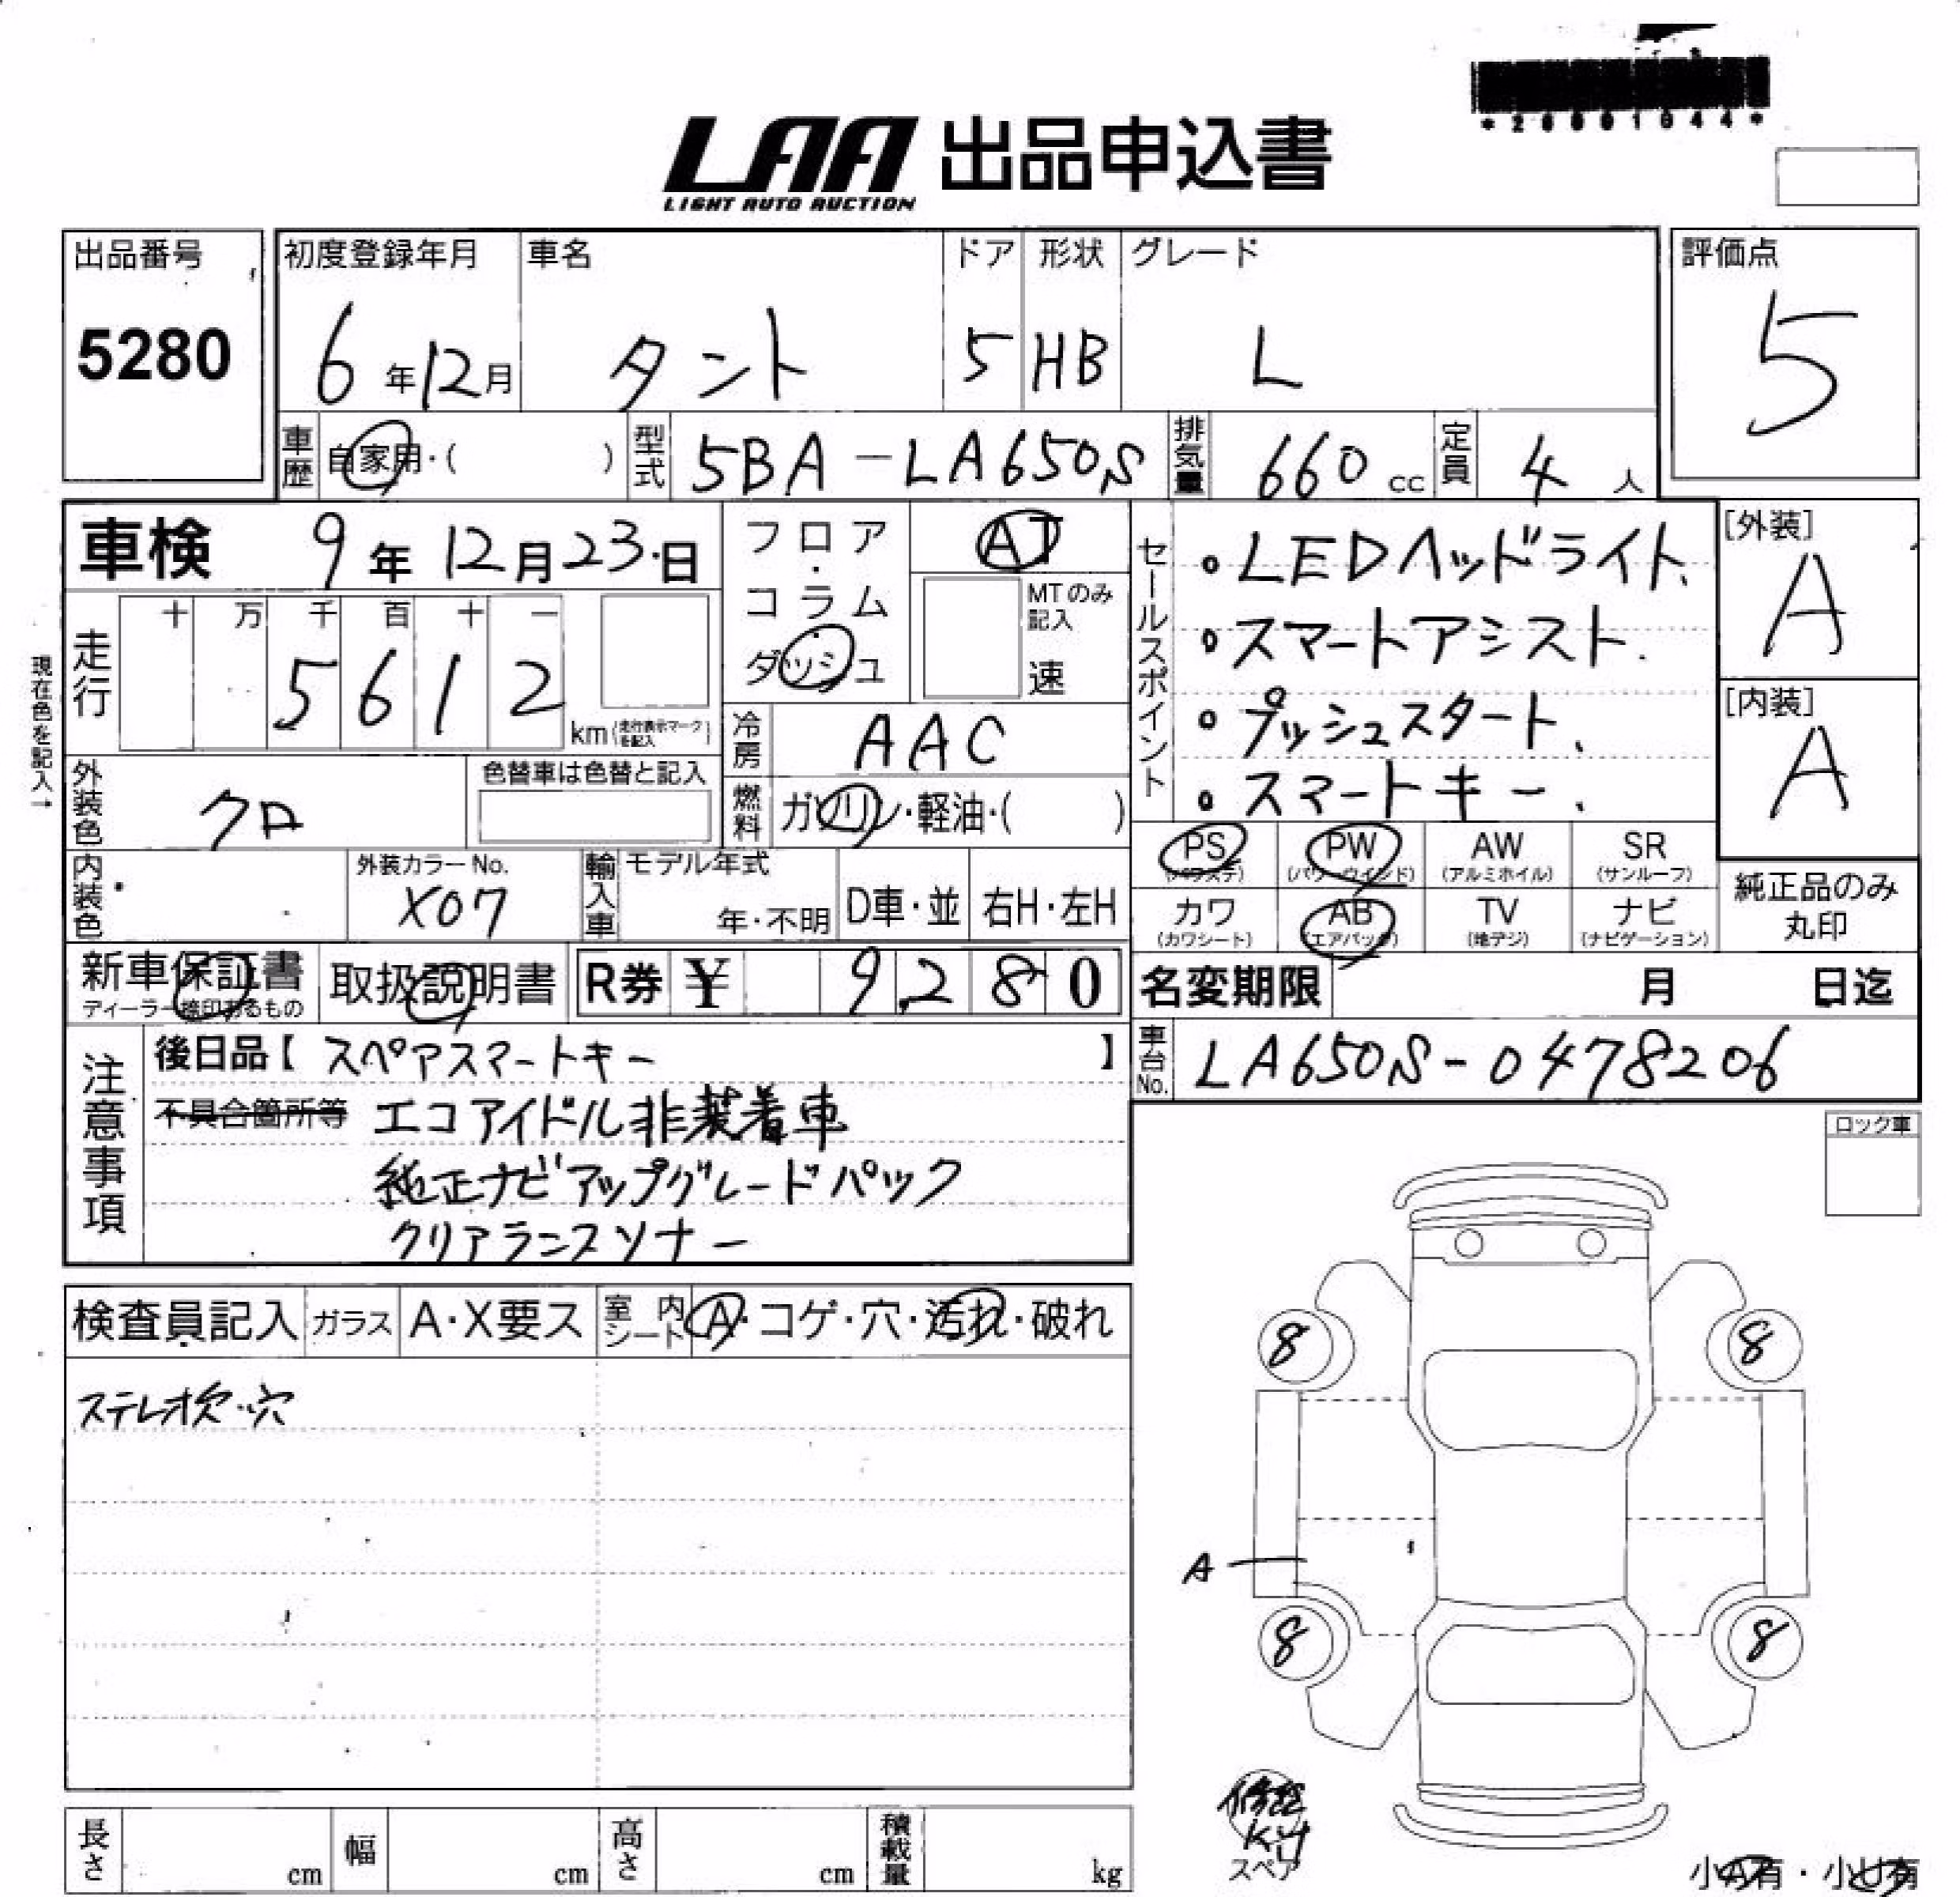 *20001044*
LAA 出品申込書
LIGHT AUTO AUCTION
出品番号 初度登録年月 車名 ドア 形状 グレード 評価点
5280 6年12月 タント 5 HB L 5
車歴 自家用・( ) 型式 5BA-LA650S 排気量 660 cc 定員 4 人
車検 9年12月23日 フロア・コラム・ダッシュ AT
MTのみ記入 速
セールスポイント
・LEDヘッドライト、
・スマートアシスト.
・プッシュスタート、
・スマートキー、
[外装] A
[内装] A
現在色を記入→
走行 十 万 千 百 十 一
5 6 1 2 km (走行表示マークを記入)
冷房 AAC
外装色 クロ 色替車は色替と記入
燃料 ガソリン・軽油・( )
内装色 外装カラーNo. X07
輸入車 モデル年式 年・不明 D車・並 右H・左H
PS (パワステ) PW (パワーウインド) AW (アルミホイル) SR (サンルーフ)
カワ (カワシート) AB (エアバッグ) TV (地デジ) ナビ (ナビゲーション)
純正品のみ丸印
新車保証書 ディーラー捺印あるもの 取扱説明書 R券 ¥ 9,280
名変期限 月 日迄
車台No. LA650S-0478206
注意事項
後日品【 スペアスマートキー 】
不具合箇所等 エコアイドル非装着車
純正ナビアップグレードパック
クリアランスソナー
ロック車
検査員記入 ガラス A・X要ス 室内シート A・コゲ・穴・汚れ・破れ
ステレオ欠・穴
8 8
A
8 8
修理
スペア
小A有・小U有
長さ cm 幅 cm 高さ cm 積載量 kg